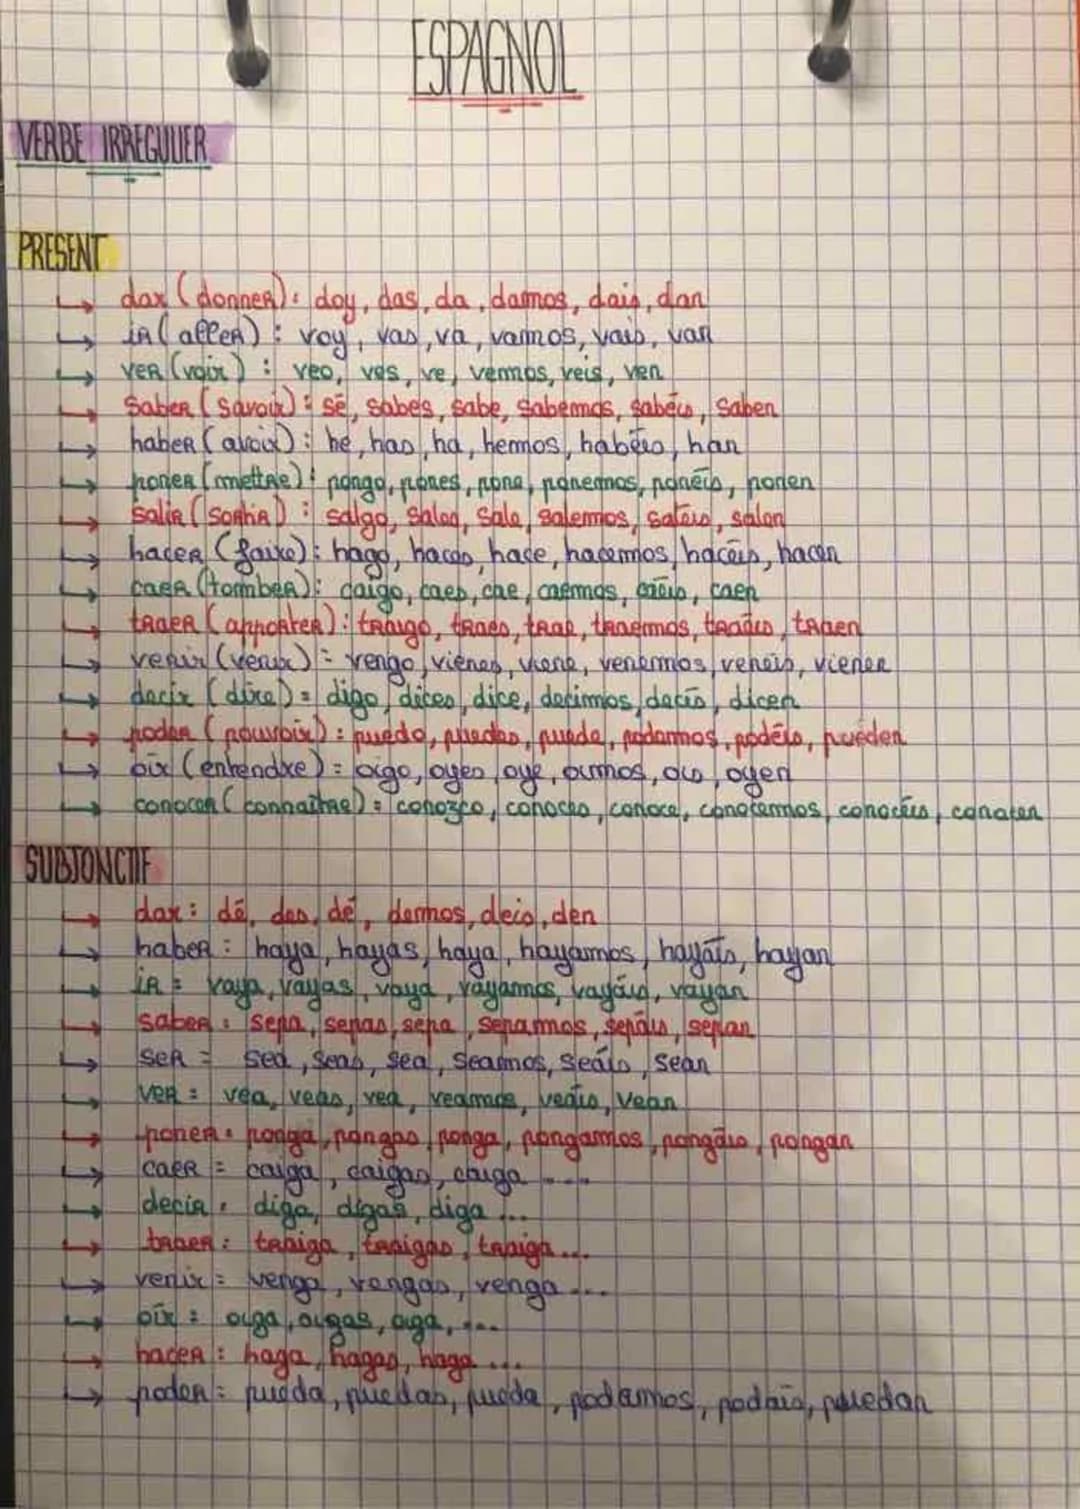 ESPAGNOL
VERBE IRREGULIER
PRESENT
↳ dar (donner) : doy, das, da, damos, dais, dan
↳ ir (aller) : voy, vas, va, vamos, vais, van
↳ ver (voir) : veo, ves, ve, vemos, veis, ven
↳ saber (savoir) : sé, sabes, sabe, sabemos, sabéis, saben
↳ haber (avoir) : he, has, ha, hemos, habéis, han
↳ poner (mettre) : pongo, pones, pone, ponemos, ponéis, ponen
↳ salir (sortir) : salgo, sales, sale, salemos, saléis, salen
↳ hacer (faire) : hago, haces, hace, hacemos, hacéis, hacen
↳ caer (tomber) : caigo, caes, cae, caemos, caéis, caen
↳ traer (apporter) : traigo, traes, trae, traemos, traéis, traen
↳ venir (venir) = vengo, vienes, viene, venemos, venéis, vienen
↳ decir (dire) = digo, dices, dice, decimos, decís, dicen
↳ poder (pouvoir) : puedo, puedes, puede, podemos, podéis, pueden
↳ oír (entendre) = oigo, oyes, oye, oímos, oís, oyen
↳ conocer (connaître) = conozco, conoces, conoce, conocemos, conocéis, conocen
SUBJONCTIF
↳ dar : dé, des, dé, demos, deis, den
↳ haber : haya, hayas, haya, hayamos, hayáis, hayan
↳ ir = vaya, vayas, vaya, vayamos, vayáis, vayan
↳ saber : sepa, sepas, sepa, sepamos, sepáis, sepan
↳ ser = sea, seas, sea, seamos, seáis, sean
↳ ver = vea, veas, vea, veamos, veáis, vean
↳ poner : ponga, pongas, ponga, pongamos, pongáis, pongan
↳ caer = caiga, caigas, caiga ....
↳ decir : diga, digas, diga ...
↳ traer : traiga, traigas, traiga ...
↳ venir = venga, vengas, venga ...
↳ oír : oiga, oigas, oiga, ...
↳ hacer : haga, hagas, haga ...
↳ poder = pueda, puedas, pueda, podamos, podáis, puedan